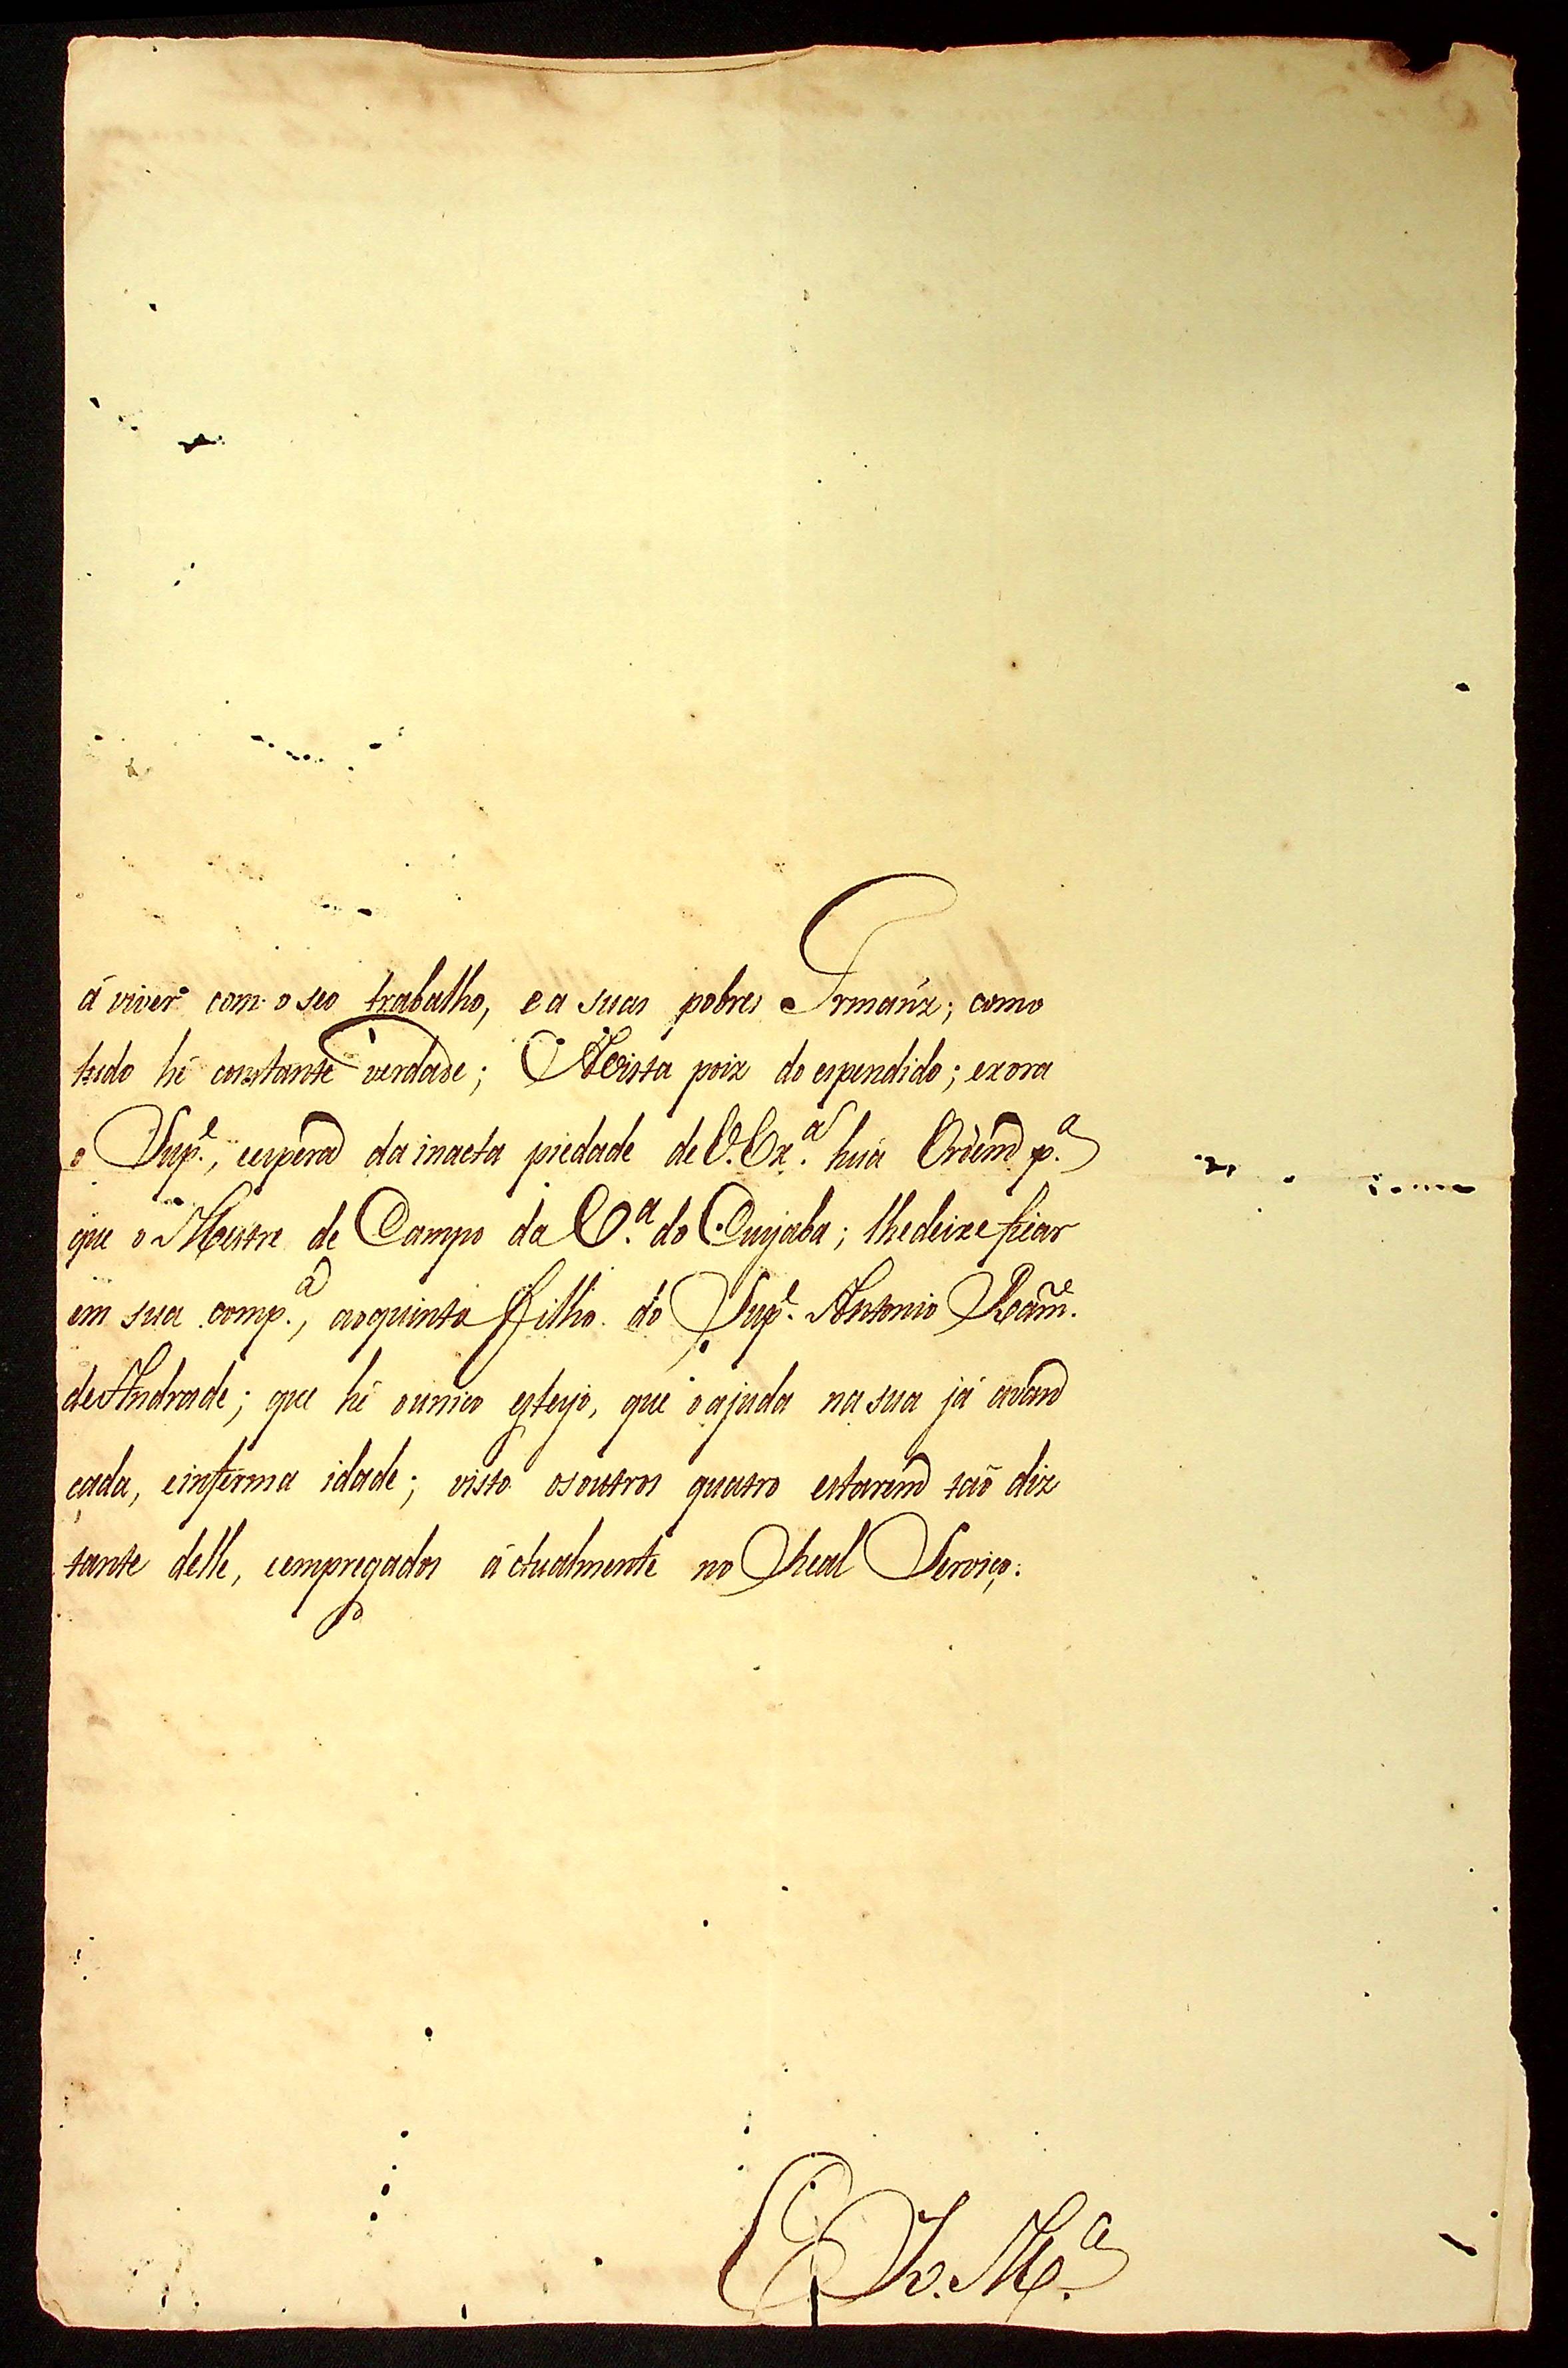 á viver com o seo trabalho, e a suas pobres Irmañz; como
tudo hé constante verdade; Avista poiz do espendido; exora
o Sup.e, eespera da inacta piedade de V. Ex.a huá Ordem p.a
que o Mestre de Campo da V.a do Cuyaba; lhedeixe ficar
em sua comp.a, aoquinto filho do Sup.e Antonio
de Andrade; que hé ounico esteyo, que o ajuda na sua já avan
çada, einferma idade; visto osoutros quatro estarem taõ diz
tante delle, eempregados áctualmente no Real Serviço.
E. R. M.ce